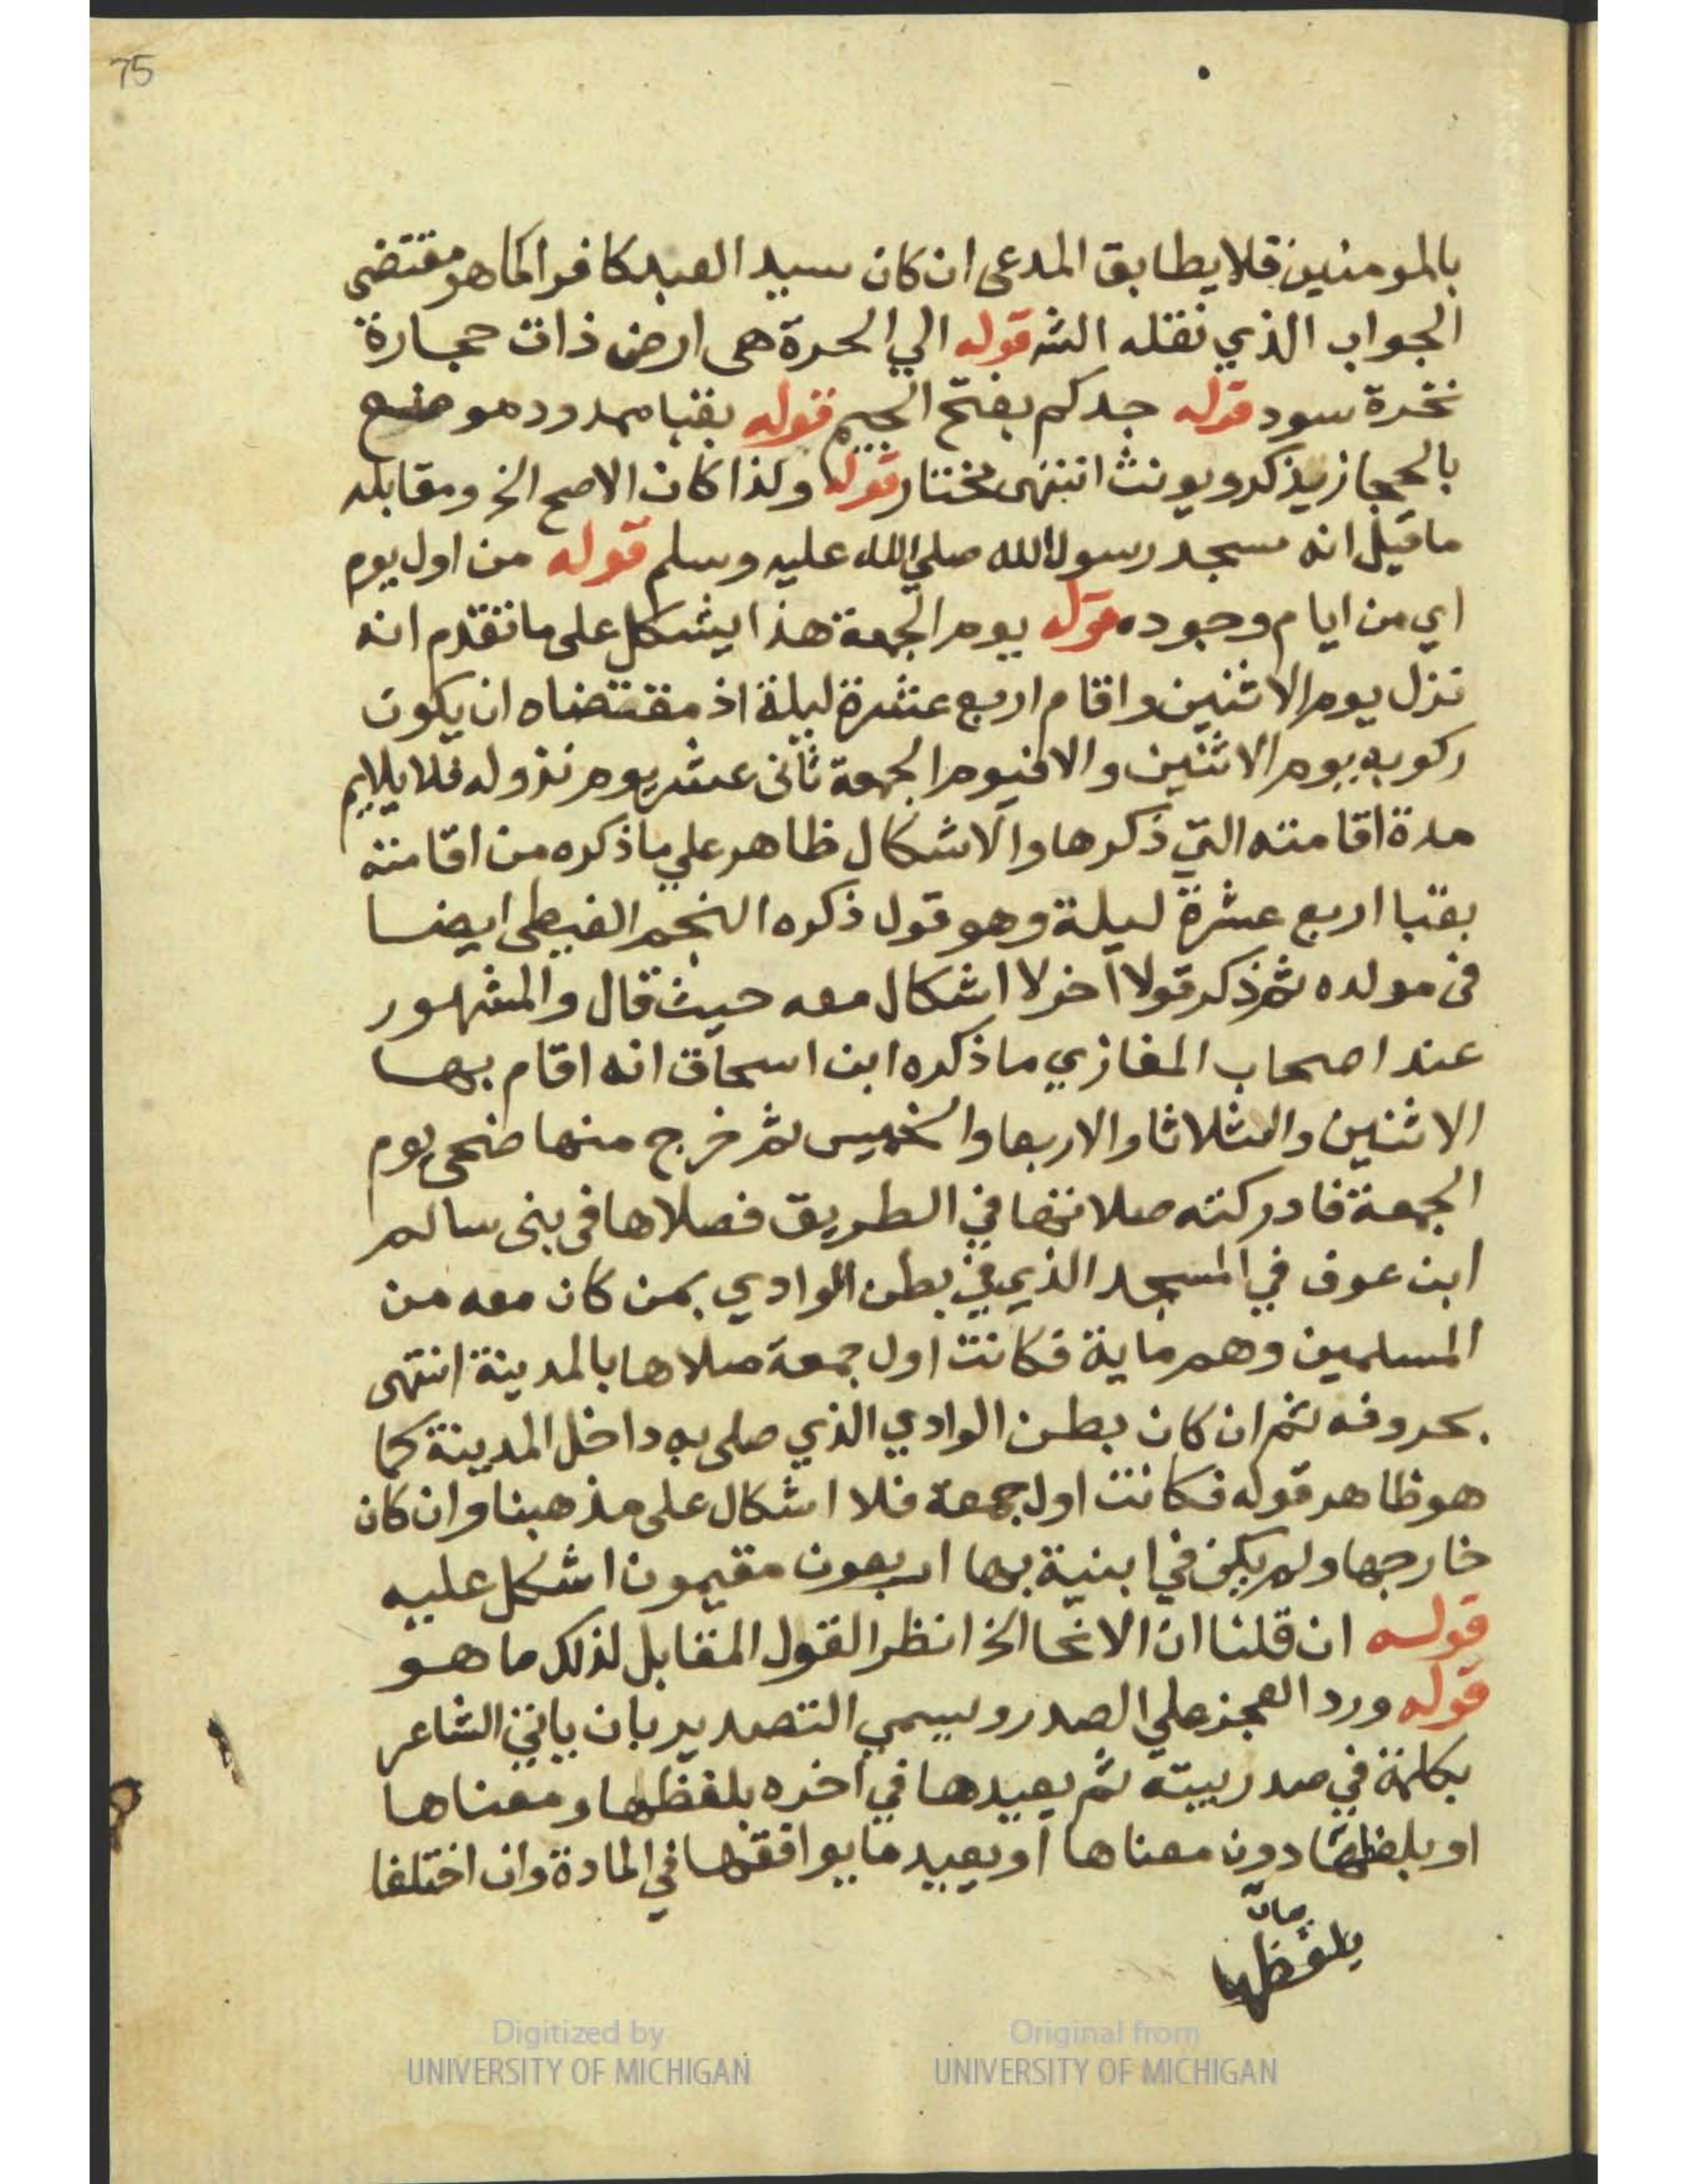 75
بالمومنين فلا يطابق المدعى ان كان سيد العبد كافرا كما هو مقتضى
الجواب الذي نقله الشه قوله الي الحرة هى ارض ذات حجارة
نخرة سود قوله جدكم بفتح الجيم قوله بقبا ممدود موضع
بالحجاز يذكر ويونث انتهى مختار قوله ولذا كان الاصح الخ ومقابله
ما قيل انه مسجد رسول الله صلي الله عليه وسلم قوله من اول يوم
اي من ايام وجوده قوله يوم الجمعة هذا يشكل على ما تقدم انه
نزل يوم الاثنين واقام اربع عشرة ليلة اذ مقتضاه ان يكون
ركوبه يوم الاثنين والا فيوم الجمعة ثانى عشر يوم نزوله فلا يلايم
مدة اقامته التي ذكرها والاشكال ظاهر علي ما ذكره من اقامته
بقبا اربع عشرة ليلة وهو قول ذكره النجم الغيطى ايضا
فى مولده ثم ذكر قولا آخر لا اشكال معه حيث قال والمشهور
عند اصحاب المغازي ما ذكره ابن اسحاق انه اقام بها
الاثنين والثلاثا والاربعا والخميس ثم خرج منها ضحى يوم
الجمعة فادركته صلاتها في الطريق فصلاها فى بنى سالم
ابن عوف في المسجد الذي في بطن الوادي بمن كان معه من
المسلمين وهم ماية فكانت اول جمعة صلاها بالمدينة انتهى
بحروفه ثم ان كان بطن الوادي الذي صلى به داخل المدينة كما
هو ظاهر قوله فكانت اول جمعة فلا اشكال على مذهبنا وان كان
خارجها ولم يكن في ابنية بها اربعون مقيمون اشكل عليه
قوله ان قلنا ان الانحا الخ انظر القول المقابل لذلك ما هو
قوله ورد العجز علي الصدر ويسمي التصدير بان ياتي الشاعر
بكلمة في صدر بيته ثم يعيدها في آخره بلفظها ومعناها
او بلفظها دون معناها او يعيد ما يوافقها في المادة وان اختلفا
بيان
بلفظها
Digitized by
UNIVERSITY OF MICHIGAN
Original from
UNIVERSITY OF MICHIGAN